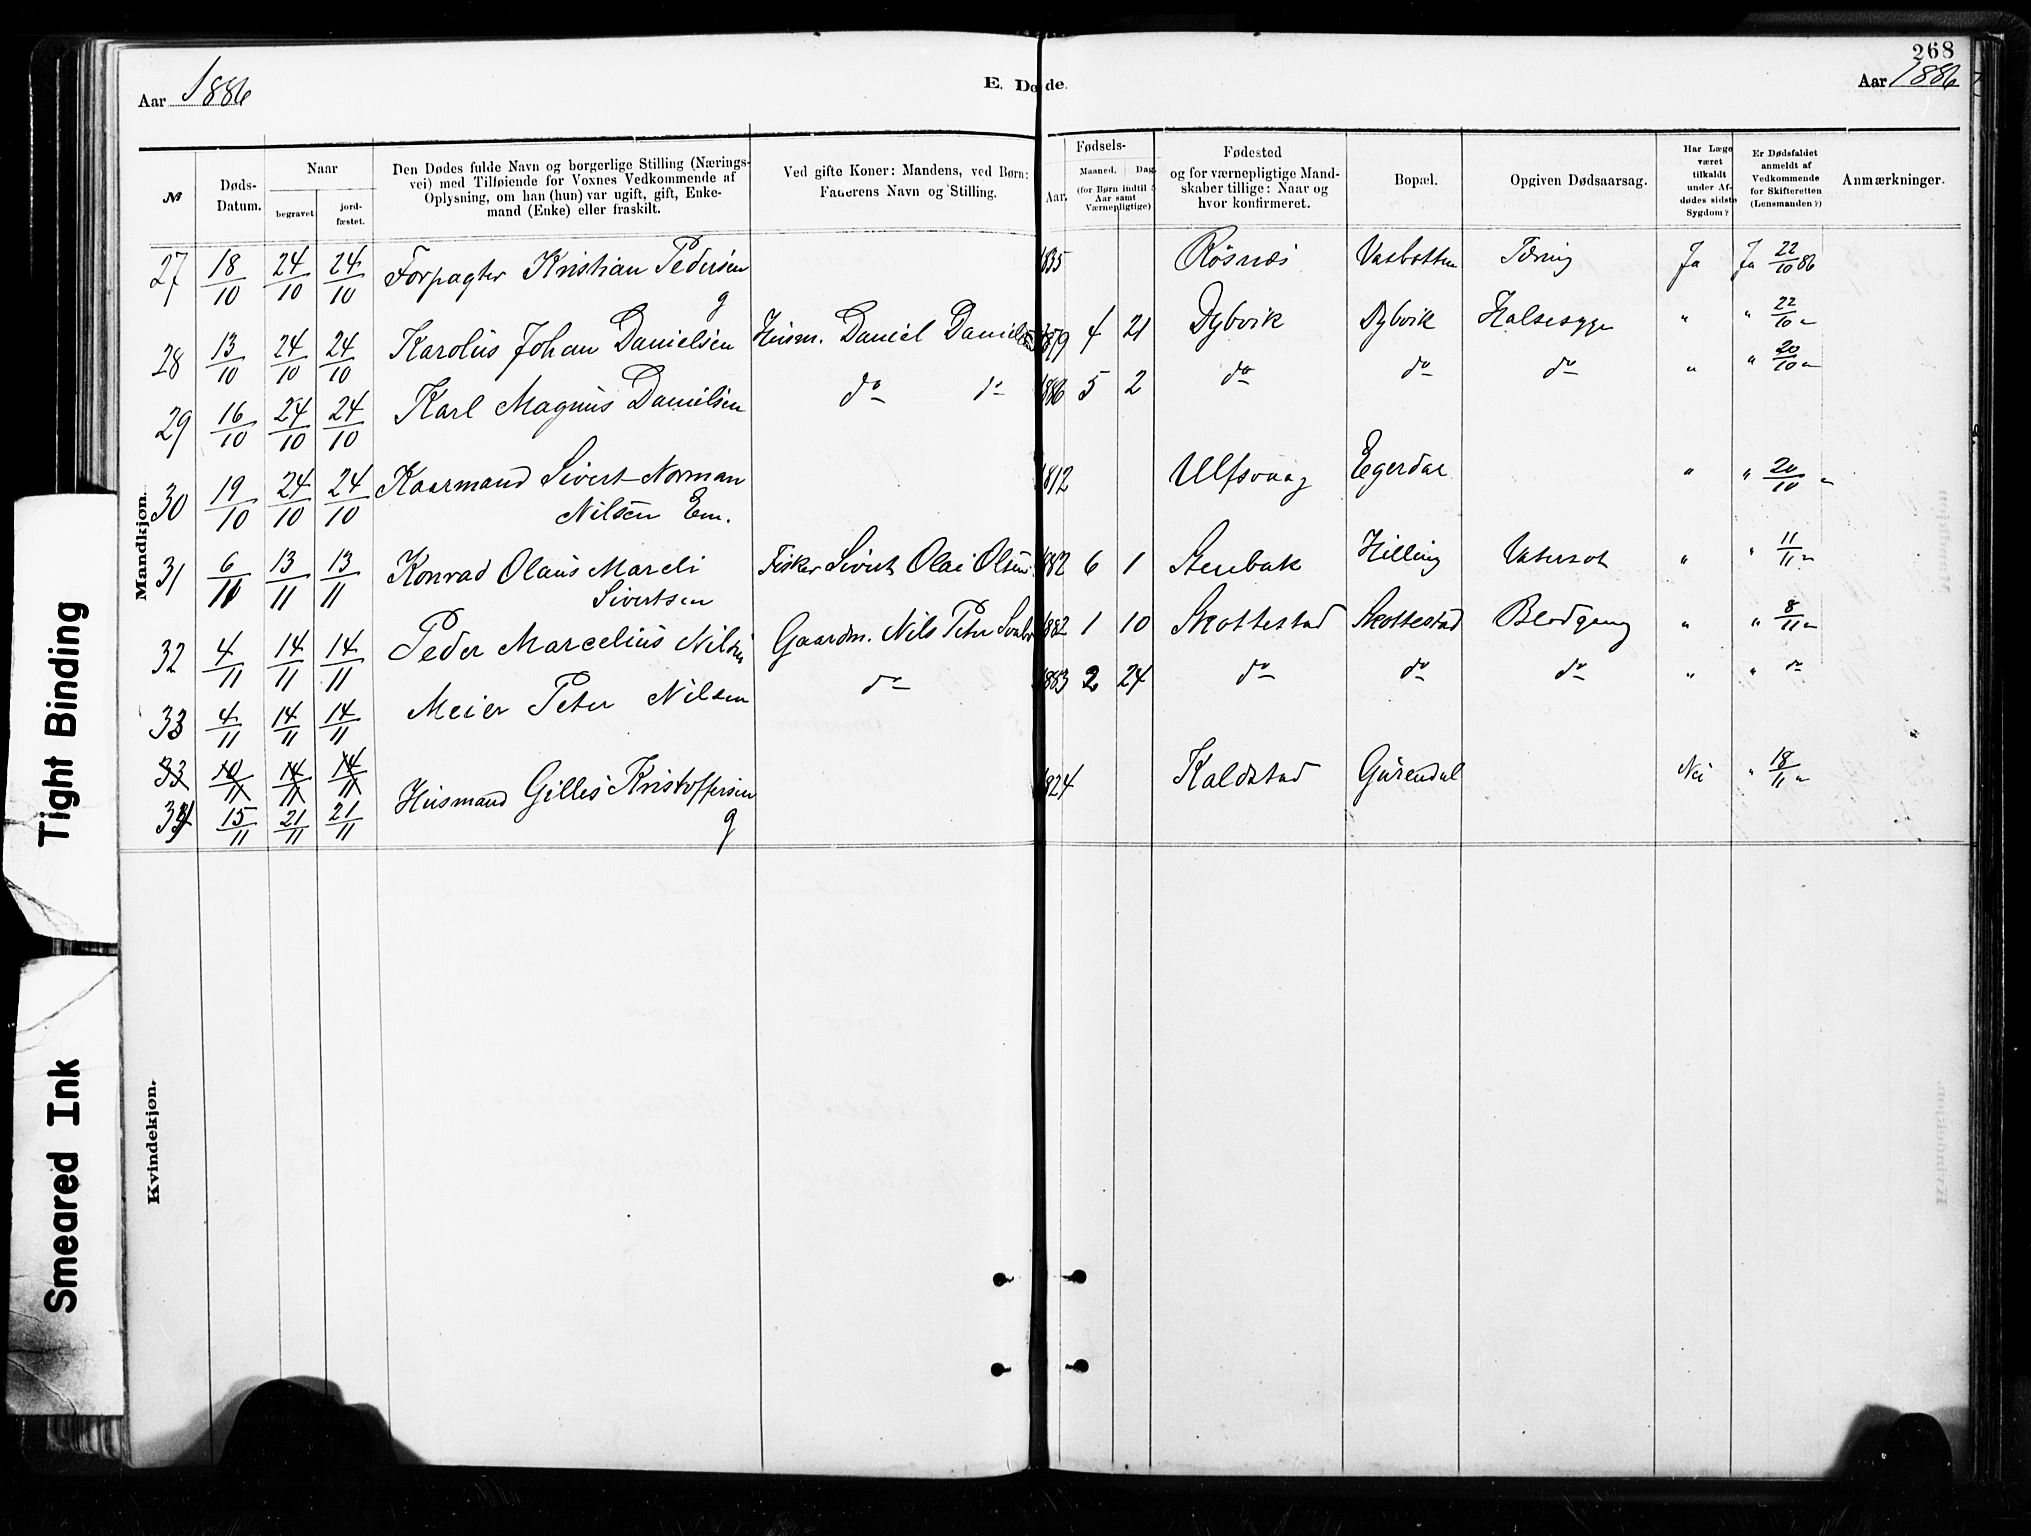 268
Aar 1886
E. Døde.
Aar 1886
№
Døds-Datum.
Naar
begravet
jordfæstet.
Den Dødes fulde Navn og borgerlige Stilling (Nærings-
vei) med Tilføiende for Voxnes Vedkommende af
Oplysning, om han (hun) var ugift, gift, Enke-
mand (Enke) eller fraskilt.
Ved gifte Koner: Mandens, ved Børn:
Faderens Navn og Stilling.
Fødsels-
Aar.
Maaned.
Dag.
(for Børn indtil
Aar samt
Værnepligtige)
Fødested
og for værnepligtige Mand-
skaber tillige: Naar og
hvor konfirmeret.
Bopæl.
Opgiven Dødsaarsag.
Har Læge
været
tilkaldt
under Af-
dødes sidste
Sygdom?
Er Dødsfaldet
anmeldt af
Vedkommende
for Skifteretten
(Lensmanden?)
Anmærkninger.
Mandkjøn.
27 18/10 24/10 24/10 Forpagter Kristian Pedersen 1835 Røsnæs Vasbotten Tæring Ja Ja 22/10 86
g
28 13/10 24/10 24/10 Karolius Johan Danielsen Husm. Daniel Danielsen 1879 4 21 Dybvik Dybvik Halssyge " " 22/10 "
29 16/10 24/10 24/10 Karl Magnus Danielsen do do 1886 5 2 do do do " " 20/10 "
30 19/10 24/10 24/10 Kaarmand Sivert Norman 1812 Ulfsvaag Egerdal " " 20/10 "
Nilsen Em.
31 6/11 13/11 13/11 Konrad Olaus Mareli Fisker Sivert Olai Olsen 1882 6 1 Stenbak Hilling Vatersot " " 11/11 "
Sivertsen
32 4/11 14/11 14/11 Peder Marcelius Nilsen Gaardm. Nils Peter 1882 1 10 Skottestad Skottestad Blodgang " " 8/11 "
33 4/11 14/11 14/11 Meier Peter Nilsen do 1883 2 24 do do do " " do
33 10/11 14/11 14/11
34 15/11 21/11 21/11 Husmand Gilles Kristoffersen 1824 Kaldstad Nei " 18/11 "
g
Kvindekjøn.
Tight Binding
Smeared Ink